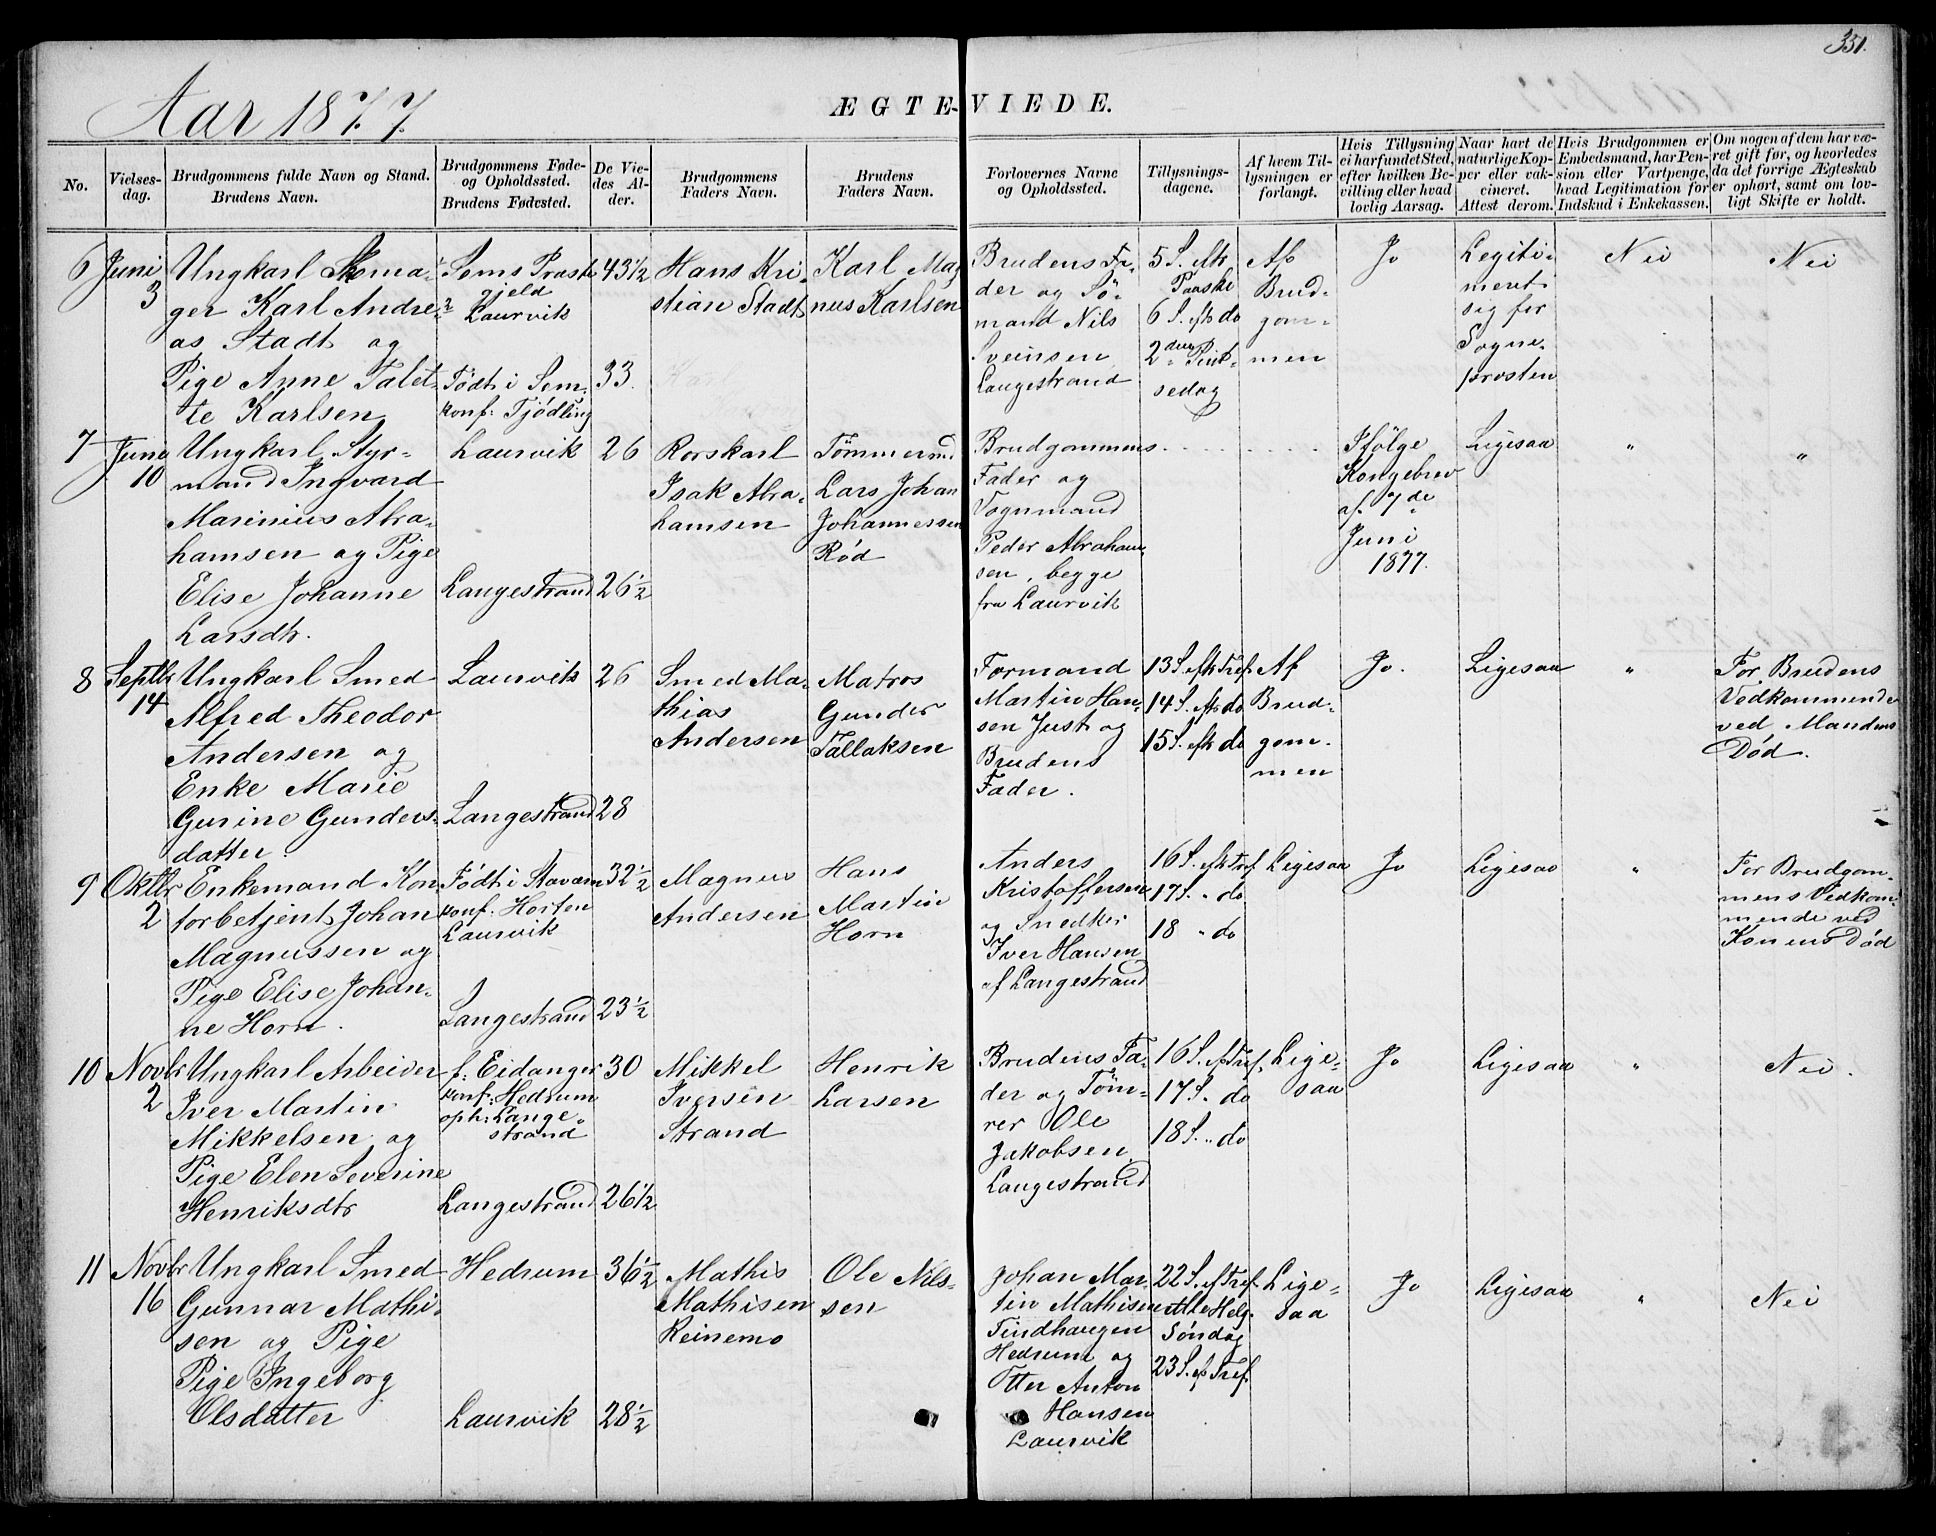 331.
Aar 1877.
ÆGTE-VIEDE.
No.
Vielses-
dag.
Brudgommens fulde Navn og Stand.
Brudens Navn.
Brudgommens Føde-
og Opholdssted.
Brudens Fødested.
De Vie-
des Al-
der.
Brudgommens
Faders Navn.
Brudens
Faders Navn.
Forlovernes Navne
og Opholdssted.
Tillysnings-
dagene.
Af hvem Til-
lysningen er
forlangt.
Hvis Tillysning
ei har fundet Sted,
efter hvilken Be-
villing eller hvad
lovlig Aarsag.
Naar havt de
naturlige Kop-
per eller vak-
cineret.
Attest derom.
Hvis Brudgommen er
Embedsmand, har Pen-
sion eller Vartpenge,
hvad Legitimation for
Indskud i Enkekassen.
Om nogen af dem har væ-
ret gift før, og hvorledes
da det forrige Ægteskab
er ophørt, samt om lov-
ligt Skifte er holdt.
6
Juni
3
Ungkarl Skoma-
ger Karl Andre-
as Stadt og
Pige Anne Talet-
te Karlsen
Sems Præste
gjeld
Laurvik
Født i Sem
konf: Tjødling
43 1/2
33.
Hans Kri
stian Stadt
Karl Mag
nus Karlsen
Brudens Fa-
der og Sö-
mand Nils
Sveinsen
Langestrand
5 S. eft
Paaske
6 S. eft do
2den Pint-
sedag
Af
Brud-
gom-
men
Jo
Legiti-
meret
sig for
Sogne-
presten
Nei
Nei
7
Juni
10
Ungkarl Styr-
mand Ingvard
Marinius Abra-
hamsen og Pige
Elise Johanne
Larsdtr.
Laurvik
Langestrand
26
26 1/2
Rorskarl
Isak Abra-
hamsen
Tömmermd
Lars Johan
Johannessen
Rød
Brudgommens
Fader og
Vognmand
Peder Abraham
sen, begge
fra Laurvik
Ifölge
Kongebrev
af 7de
Juni
1877.
Ligesaa
"
"
8
Septbr
14
Ungkarl Smed
Alfred Theodor
Andersen og
Enke Marie
Gurine Gunders-
datter.
Laurvik
Langestrand
26
28
Smed Ma-
thias
Andersen
Matros
Gunder
Tallaksen
Formand
Martin Han-
sen Just og
Brudens
Fader.
13 S. eft Tref.
14 S. eft do
15 S. eft do
Af
Brud-
gom-
men
Jo.
Ligesaa
"
For Brudens
Vedkommende
ved Mandens
Død.
9
Oktbr
2
Enkemand Kon
torbetjent Johan
Magnussen og
Pige Elise Johan-
ne Horn.
Født i Staværn
konf: Horten
Laurvik
Langestrand
32 1/2
23 1/2
Magnus
Andersen
Hans
Martin
Horn
Anders
Kristoffersen
og Snedker
Iver Hansen
af Langestrand
16 S. eft Tref
17 S. " do
18 " do
Ligesaa
Jo
Ligesaa
"
For Brudgom-
mens Vedkom-
mende ved
Konens Død
10
Novbr
2
Ungkarl Arbeider
Iver Martin
Mikkelsen og
Pige Elen Severine
Henriksdtr
f: Eidanger
konf: Hedrum
oph: Lange-
strand
Langestrand
30
26 1/2
Mikkel
Iversen
Strand
Henrik
Larsen
Brudens Fa-
der og Töm-
rer Ole
Jakobsen
Langestrand
16 S. ef Tref.
17 S. do
18 S. " do
Lige-
saa
Jo
Ligesaa
"
Nei.
11
Novbr
16
Ungkarl Smed
Gunnar Mathi-
sen og Pige
Pige Ingeborg
Olsdatter
Hedrum
Laurvik
36 1/2
28 1/2
Mathis
Mathisen
Reinemo
Ole Nils-
sen
Johan Mar-
tin Mathisen
Tindhaugen
Hedrum og
Otter Anton
Hansen
Laurvik
22 S. ef Tref.
Alle Helg.
Söndag
23 S. ef Tref.
Lige-
saa
Jo
Ligesaa
"
Nei